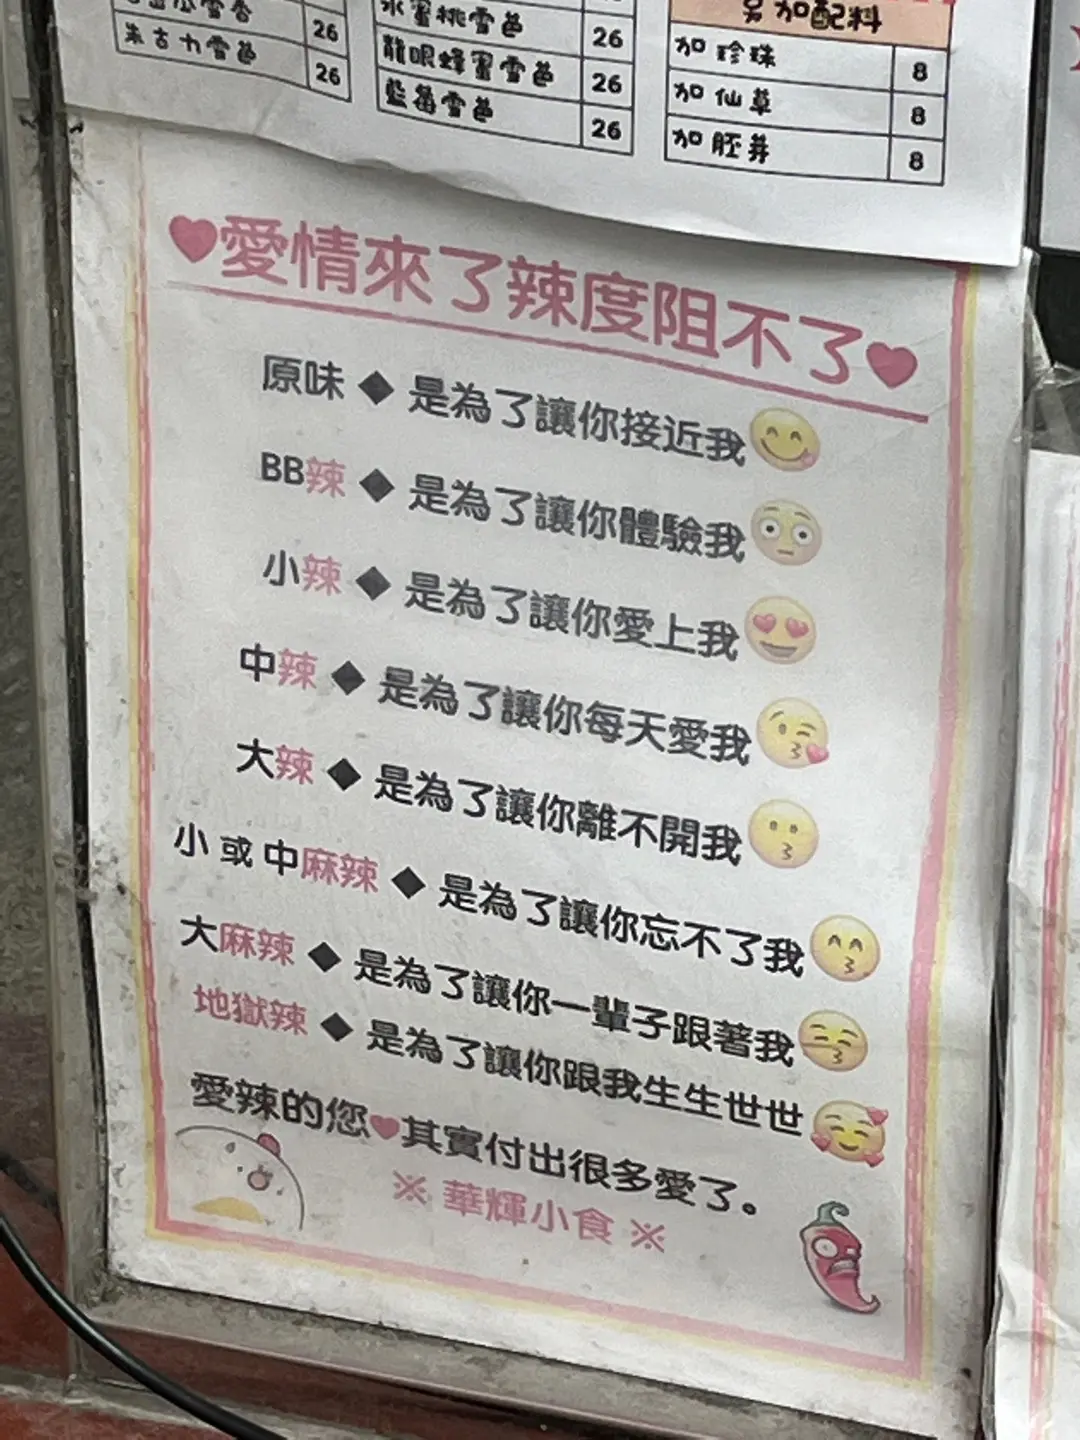 26
朱古力雪芭 26
水蜜桃雪芭 26
龍眼蜂蜜雪芭 26
藍莓雪芭 26
另加配料
加珍珠 8
加仙草 8
加胚芽 8
愛情來了辣度阻不了
原味◆是為了讓你接近我
BB辣◆是為了讓你體驗我
小辣◆是為了讓你愛上我
中辣◆是為了讓你每天愛我
大辣◆是為了讓你離不開我
小或中麻辣◆是為了讓你忘不了我
大麻辣◆是為了讓你一輩子跟著我
地獄辣◆是為了讓你跟我生生世世
愛辣的您❤其實付出很多愛了。
※ 華輝小食 ※